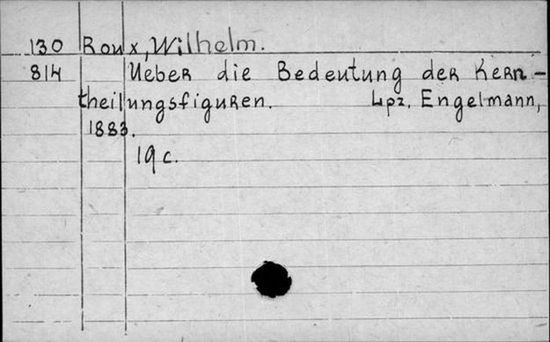 130 Roux, Wilhelm.
814 Ueber die Bedeutung der Kern-
theilungsfiguren. Lpz. Engelmann,
1883.
19c.